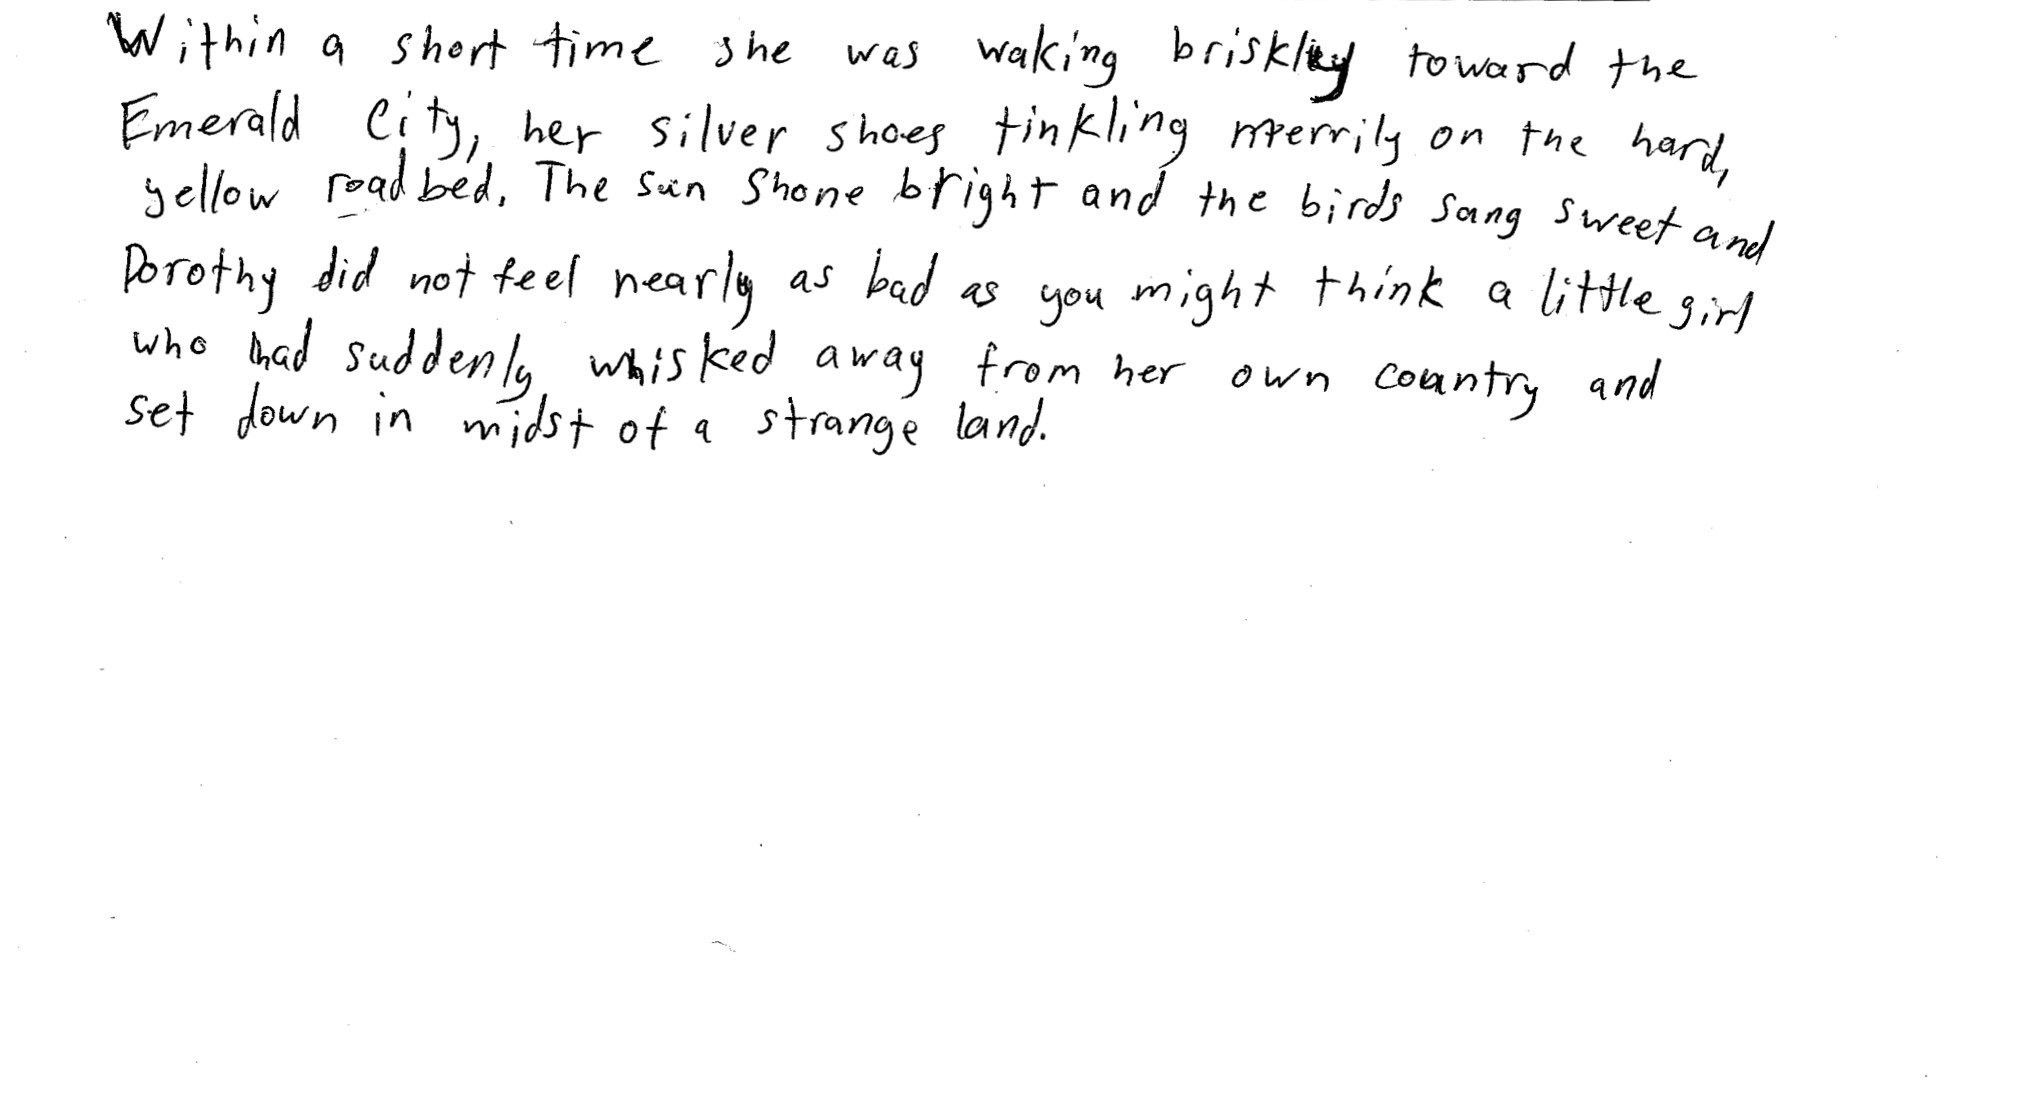 Within a short time she was waking briskly toward the
Emerald City, her silver shoes tinkling merrily on the hard,
yellow roadbed. The sun shone bright and the birds sang sweet and
Dorothy did not feel nearly as bad as you might think a little girl
who had suddenly whisked away from her own country and
set down in midst of a strange land.